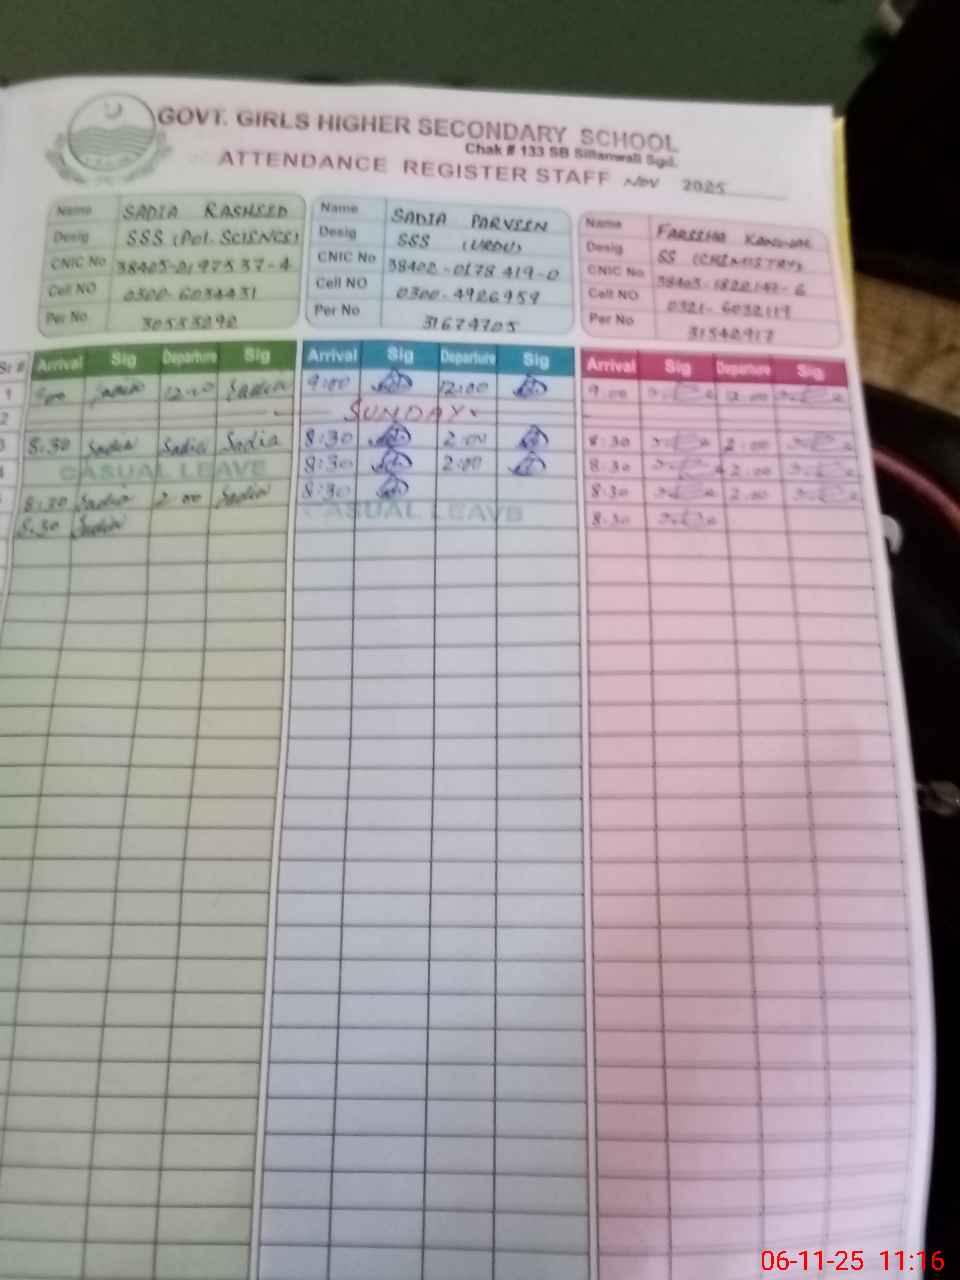 GOVT. GIRLS HIGHER SECONDARY SCHOOL
Chak # 133 SB Sillanwali Sgd.
ATTENDANCE REGISTER STAFF Nov 2025
Name SADIA RASHEED
Desig SSS (Pol. SCIENCE)
CNIC No 38403-0197537-4
Cell NO 0300-6034431
Per No 30553292
Name SADIA PARVEEN
Desig SSS (URDU)
CNIC No 38402-0178419-0
Cell NO 0300-4926959
Per No 31674705
Name FAREEHA KANWAL
Desig SS (CHEMISTRY)
CNIC No 38403-1822147-6
Cell NO 0321-6032117
Per No 31540917
Sr # Arrival Sig Departure Sig Arrival Sig Departure Sig Arrival Sig Departure Sig
1 9:00 Sadia 12:00 Sadia 9:00 12:00 9:00 12:00
2 SUNDAY
3 8:30 Sadia Sadia Sadia 8:30 2:00 8:30 2:00
4 CASUAL LEAVE 8:30 2:00 8:30 2:00
8:30 Sadia 2:00 Sadia 8:30 8:30 2:00
8:30 Sadia CASUAL LEAVE 8:30
06-11-25 11:16